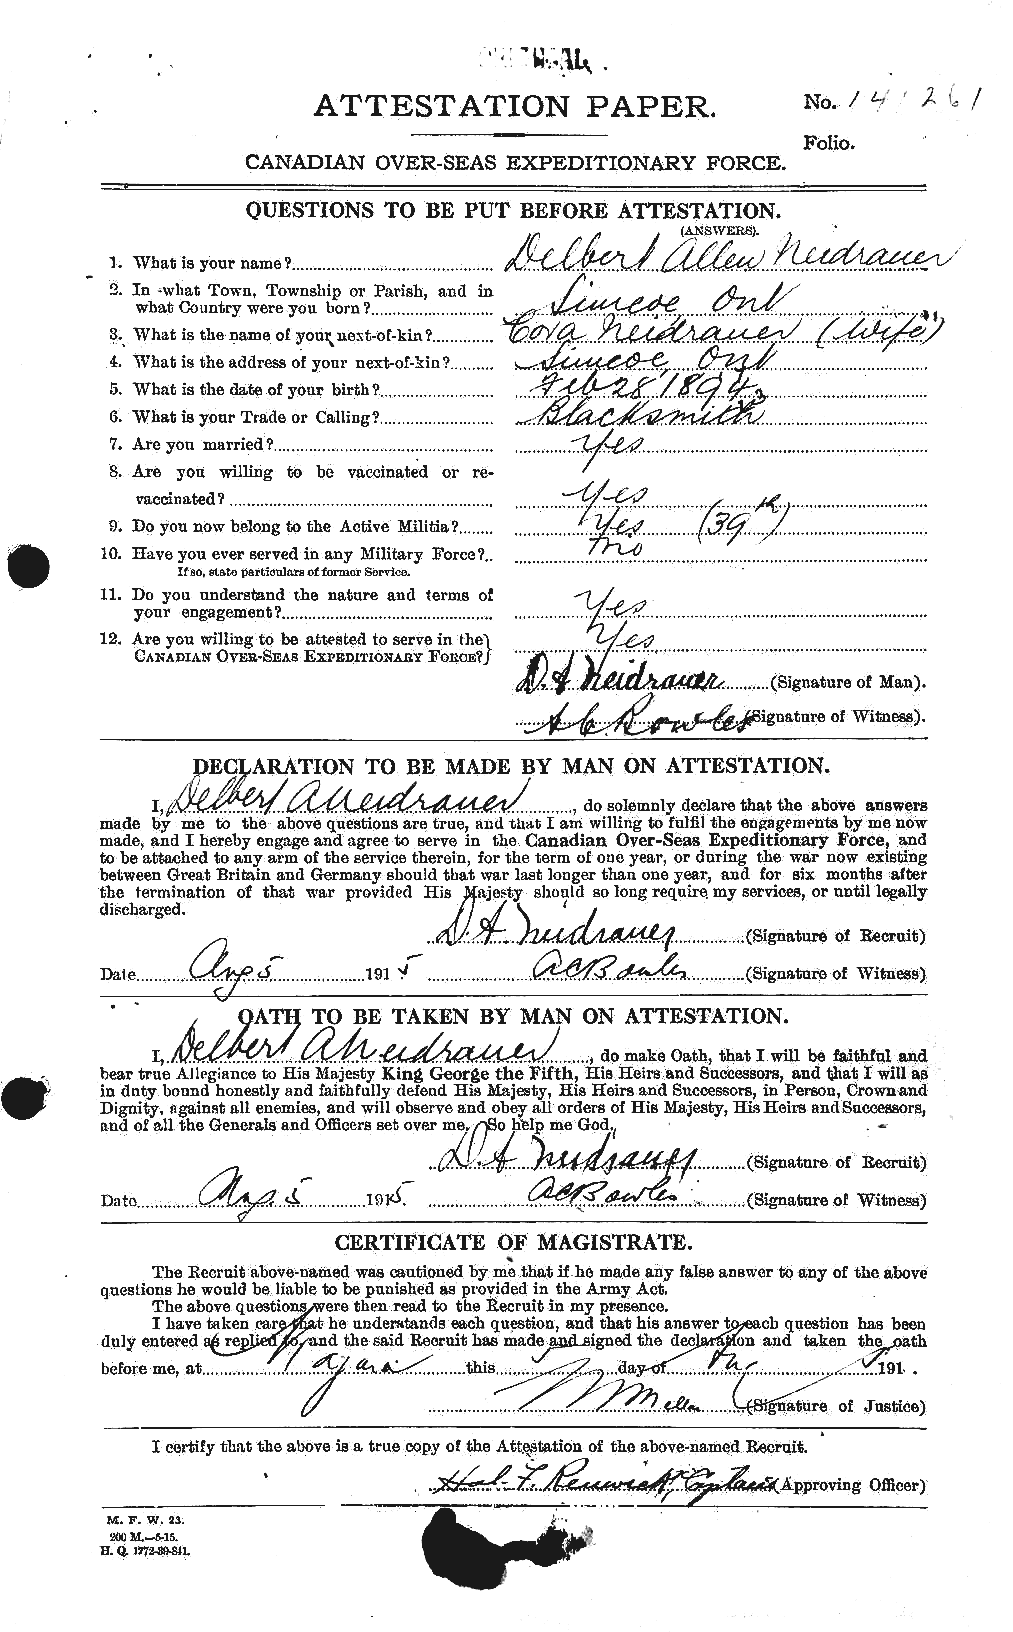 ATTESTATION PAPER.
No. 141261
Folio.
CANADIAN OVER-SEAS EXPEDITIONARY FORCE.
QUESTIONS TO BE PUT BEFORE ATTESTATION.
(ANSWERS).
1. What is your name? Delbert Allen Neidrauer
2. In what Town, Township or Parish, and in
what Country were you born? Simcoe Ont
3. What is the name of your next-of-kin? Cora Neidrauer (Wife)
4. What is the address of your next-of-kin? Simcoe, Ont
5. What is the date of your birth? Feb 28 1894
6. What is your Trade or Calling? Blacksmith
7. Are you married? Yes
8. Are you willing to be vaccinated or re-
vaccinated? Yes
9. Do you now belong to the Active Militia? Yes (39th)
10. Have you ever served in any Military Force? No
If so, state particulars of former Service.
11. Do you understand the nature and terms of
your engagement? Yes
12. Are you willing to be attested to serve in the
CANADIAN OVER-SEAS EXPEDITIONARY FORCE? Yes
D. A Neidrauer (Signature of Man).
A C. Bowles (Signature of Witness).
DECLARATION TO BE MADE BY MAN ON ATTESTATION.
I, Delbert A Neidrauer, do solemnly declare that the above answers
made by me to the above questions are true, and that I am willing to fulfil the engagements by me now
made, and I hereby engage and agree to serve in the Canadian Over-Seas Expeditionary Force, and
to be attached to any arm of the service therein, for the term of one year, or during the war now existing
between Great Britain and Germany should that war last longer than one year, and for six months after
the termination of that war provided His Majesty should so long require my services, or until legally
discharged.
D. A. Neidrauer (Signature of Recruit)
Date Aug 5 1915 A C Bowles (Signature of Witness)
OATH TO BE TAKEN BY MAN ON ATTESTATION.
I, Delbert A Neidrauer, do make Oath, that I will be faithful and
bear true Allegiance to His Majesty King George the Fifth, His Heirs and Successors, and that I will as
in duty bound honestly and faithfully defend His Majesty, His Heirs and Successors, in Person, Crown and
Dignity, against all enemies, and will observe and obey all orders of His Majesty, His Heirs and Successors,
and of all the Generals and Officers set over me. So help me God.
D. A Neidrauer (Signature of Recruit)
Date Aug. 5 1915. A C Bowles (Signature of Witness)
CERTIFICATE OF MAGISTRATE.
The Recruit above-named was cautioned by me that if he made any false answer to any of the above
questions he would be liable to be punished as provided in the Army Act.
The above questions were then read to the Recruit in my presence.
I have taken care that he understands each question, and that his answer to each question has been
duly entered as replied to, and the said Recruit has made and signed the declaration and taken the oath
before me, at this 5 day of Aug 1915.
(Signature of Justice)
I certify that the above is a true copy of the Attestation of the above-named Recruit.
Hal. F. Renwick, Captain (Approving Officer)
M. F. W. 23.
200 M.—6-15.
H. Q. 1772-39-841.